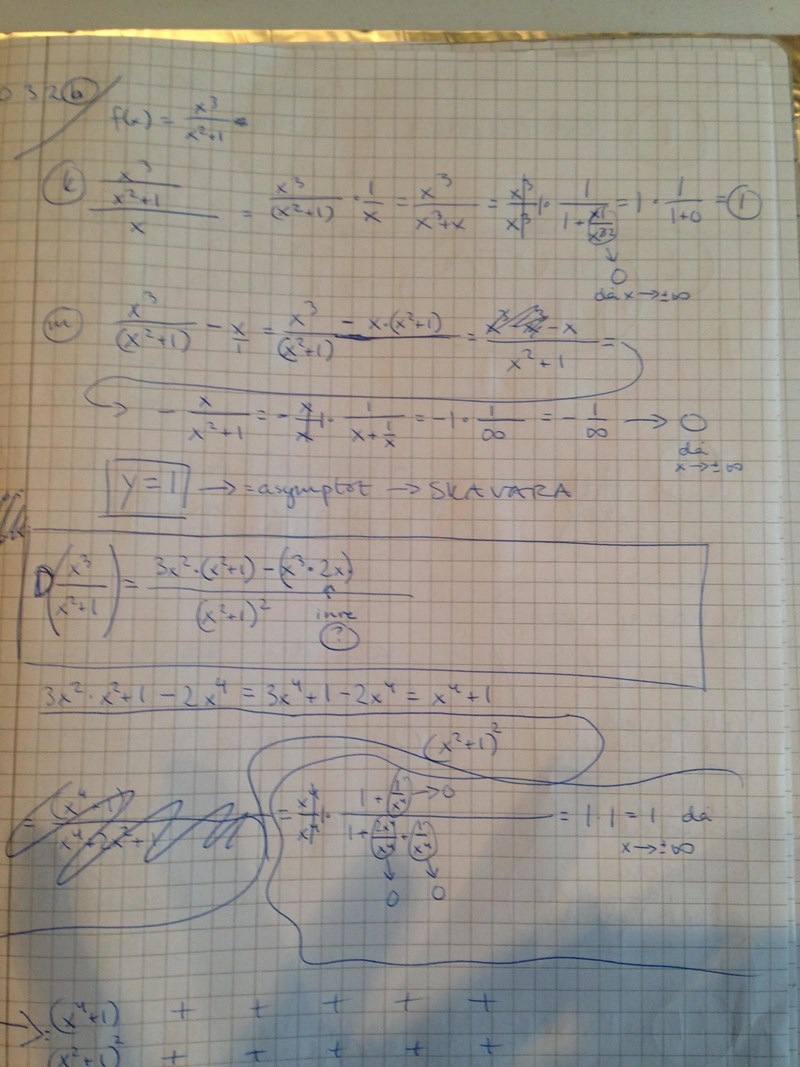 032 b
f(x) = x³/(x²+1)
k (x³/(x²+1))/x = x³/(x²+1) · 1/x = x³/(x³+x) = x³/x³ · 1/(1+x/x³) = 1 · 1/(1+0) = 1
↓
0
då x → ±∞
m x³/(x²+1) - x/1 = x³/(x²+1) - x·(x²+1) = -x/(x²+1) =
→ - x/(x²+1) = - x/x · 1/(x+1/x) = -1 · 1/∞ = - 1/∞ → 0
då
x → ±∞
y = 1 → = asymptot → SKAVARA
D(x³/(x²+1)) = (3x²·(x²+1) - (x³·2x))/(x²+1)²
inre
?
3x² · x²+1 - 2x⁴ = 3x⁴+1 - 2x⁴ = x⁴+1
(x²+1)²
= x⁴/x⁴ · (1 + 1/x⁴)/(1 + 2x²/x⁴ + 1/x⁴) = 1·1 = 1 då
→ 0
x → ±∞
↓ ↓
0 0
→ (x⁴+1) + + + + +
(x²+1)² + + + + +